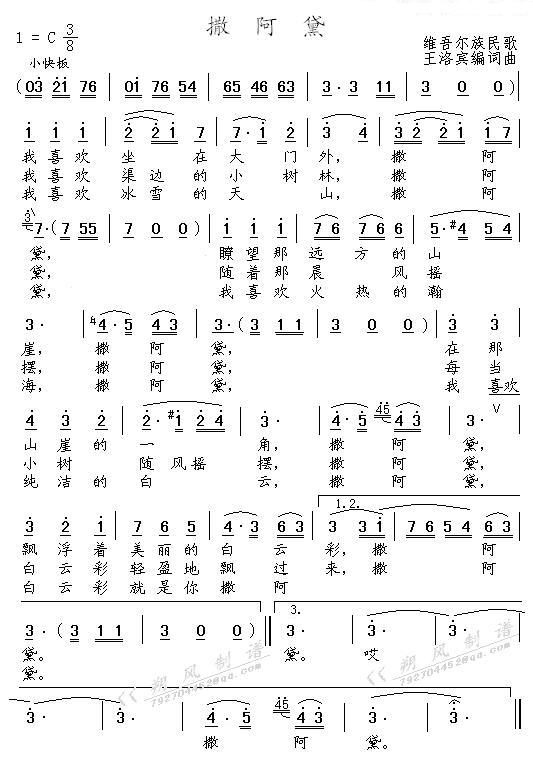 撒阿黛
1 = C 3/8
维吾尔族民歌
王洛宾编词曲
小快板
(03 21 76 | 01 76 54 | 3·3 65 | 4·3 67 | 3·3 11 | 3 0 0)
1 1 1 | 2 2 1 7 | 7·6 1 2 | 3 4 | 3 2 2 1 | 1 7
我喜欢 坐 在大门外, 撒 阿
我喜欢 渠边的小树林, 撒 阿
我喜欢 冰雪的天 山, 撒 阿
7·(7 55 | 7 0 0) | 1 1 1 | 7 6 7 | 5·#4 5 4
黛, 瞭望那远方的山
黛, 随着那晨 风摇
黛, 我喜欢火热的瀚
3· | 4·5 4 3 | 3·(3 11 | 3 0 0) | 3 3
崖, 撒阿黛, 在那
摆, 撒阿黛, 每当
海, 撒阿黛, 我喜欢
4 3 2 | 2·#1 2 4 | 3· | 4·5 4 3 | 3· V
山崖的一 角, 撒阿黛,
小树 随风摇摆, 撒阿黛,
纯洁的白 云, 撒阿黛,
1.2.
3 2 1 | 7 6 5 | 4·3 63 | 3 3 1 | 7 6 5 4 | 6 3
飘浮着美丽的白云彩, 撒 阿
白云彩轻盈地飘过来, 撒 阿
白云彩就是你撒阿
3.
3·(3 11 | 3 0 0) | 3· | 3·
黛。 黛。 哎
黛。
朔风制谱
792704452@qq.com
朔风制谱
792704452@qq.com
3· | 3· | 3· | 4·5 | 4 3 | 3· | 3·
撒 阿 黛。